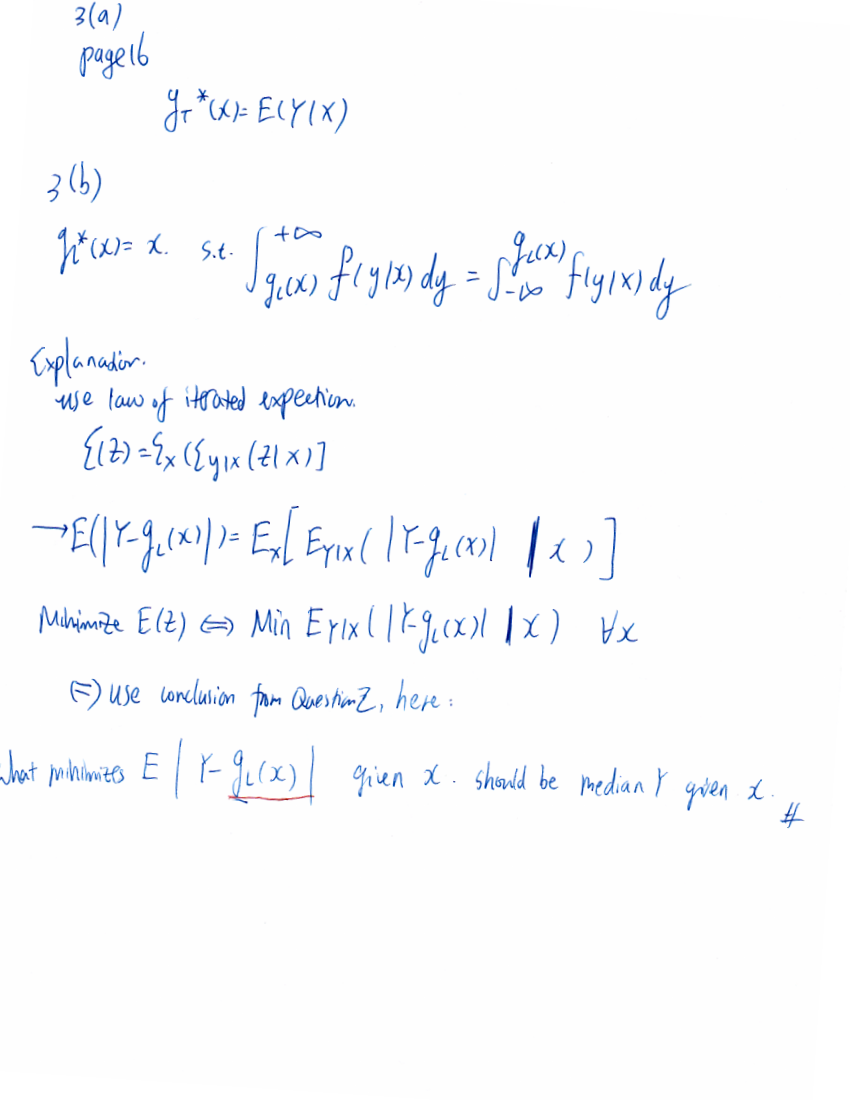 3(a)
page16
g_T*(x)= E(Y|X)
3(b)
g_L*(x)= x. s.t. ∫_{g_L(x)}^{+∞} f(y|x) dy = ∫_{-∞}^{g_L(x)} f(y|x) dy
Explanation.
use law of iterated expection.
E(Z) = E_X (E_{Y|X} (Z|X)]
→E(|Y-g_L(x)|)= E_X[ E_{Y|X} ( |Y-g_L(x)| | x ) ]
Minimize E(Z) ⇔ Min E_{Y|X} ( |Y-g_L(x)| | X ) ∀x
(=) use conclusion from Question2, here :
what minimizes E | Y-g_L(x) | given x. should be median Y given x. #